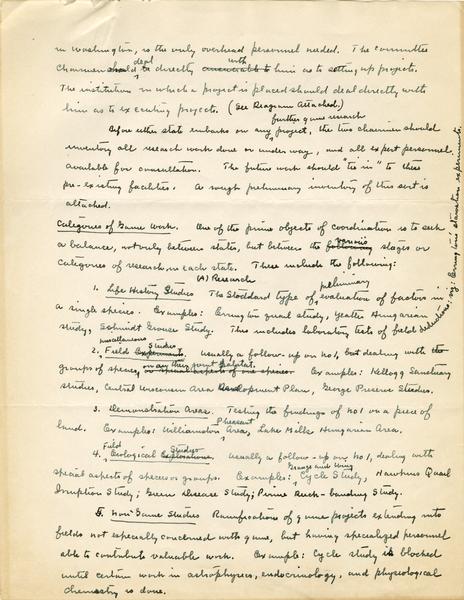 in Washington, is the only overhead personnel needed. The committee
chairmen should deal directly with him as to setting up projects.
The institution in which a project is placed should deal directly with
him as to executing projects. (See Diagram Attached.)
Before either state embarks on any further game research project, the two chairmen should
inventory all research work done or under way, and all expert personnel
available for consultation. The future work should "tie in" to these
pre-existing facilities. A rough preliminary inventory of this sort is
attached.
Categories of Game Work. One of the prime objects of coordination is to seek
a balance, not only between states, but between the various stages or
categories of research in each state. These include the following:
(A) Research
1. Life History Studies The Stoddard type of preliminary evaluation of factors in
a single species. Examples: Errington quail study, Yeatter Hungarian
study, Schmidt Grouse Study. This includes laboratory tests of field deductions, eg: Errington's starvation experiments.
2. miscellaneous Field Studies. Usually a follow-up on No 1, but dealing with
groups of species, or any their joint habitat. Example: Kellogg Sanctuary
studies, Central Wisconsin Area Development Plan, George Preserve Studies.
3. Demonstration Areas. Testing the findings of No 1 on a piece of
land. Examples: Williamston Pheasant Area, Lake Mills Hungarian Area.
4. Field Ecological Studies. Usually a follow-up on No 1, dealing with
special aspects of species or groups. Examples: Grange and Wing Cycle Study, Hawkins Quail
Irruption Study; Green Disease Study; Pirnie Duck-banding Study.
5. Non-Game Studies Ramifications of game projects extending into
fields not especially concerned with game, but having specialized personnel
able to contribute valuable work. Example: Cycle study is blocked
until certain work in astrophysics, endocrinology, and physiological
chemistry is done.